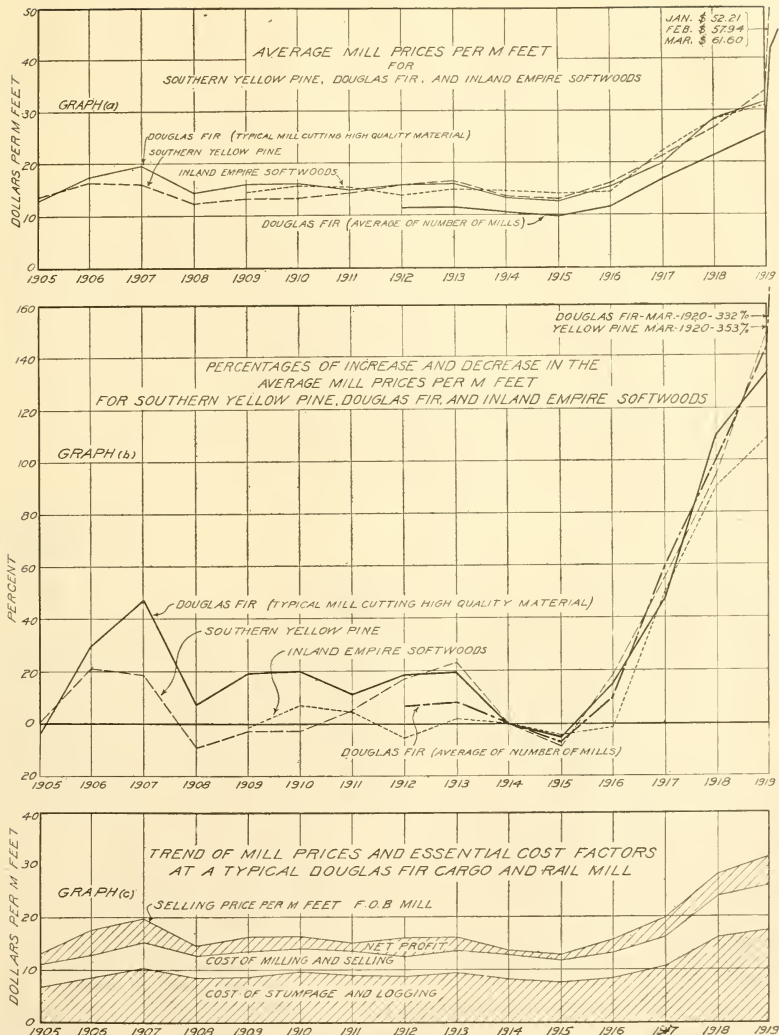 50
40
30
20
10
0
DOLLARS PER M FEET
JAN. $ 52.21
FEB. $ 57.94
MAR. $ 61.60
AVERAGE MILL PRICES PER M FEET
FOR
SOUTHERN YELLOW PINE, DOUGLAS FIR, AND INLAND EMPIRE SOFTWOODS
GRAPH (a)
DOUGLAS FIR (TYPICAL MILL CUTTING HIGH QUALITY MATERIAL)
SOUTHERN YELLOW PINE
INLAND EMPIRE SOFTWOODS
DOUGLAS FIR (AVERAGE OF NUMBER OF MILLS)
1905 1906 1907 1908 1909 1910 1911 1912 1913 1914 1915 1916 1917 1918 1919
160
140
120
100
80
60
40
20
0
20
PERCENT
DOUGLAS FIR-MAR.-1920-332%
YELLOW PINE MAR.-1920-353%
PERCENTAGES OF INCREASE AND DECREASE IN THE
AVERAGE MILL PRICES PER M FEET
FOR SOUTHERN YELLOW PINE, DOUGLAS FIR, AND INLAND EMPIRE SOFTWOODS
GRAPH (b)
DOUGLAS FIR (TYPICAL MILL CUTTING HIGH QUALITY MATERIAL)
SOUTHERN YELLOW PINE
INLAND EMPIRE SOFTWOODS
DOUGLAS FIR (AVERAGE OF NUMBER OF MILLS)
1905 1906 1907 1908 1909 1910 1911 1912 1913 1914 1915 1916 1917 1918 1919
40
30
20
10
0
DOLLARS PER M FEET
TREND OF MILL PRICES AND ESSENTIAL COST FACTORS
AT A TYPICAL DOUGLAS FIR CARGO AND RAIL MILL
GRAPH (c)
SELLING PRICE PER M FEET F.O.B MILL
NET PROFIT
COST OF MILLING AND SELLING
COST OF STUMPAGE AND LOGGING
1905 1906 1907 1908 1909 1910 1911 1912 1913 1914 1915 1916 1917 1918 1919